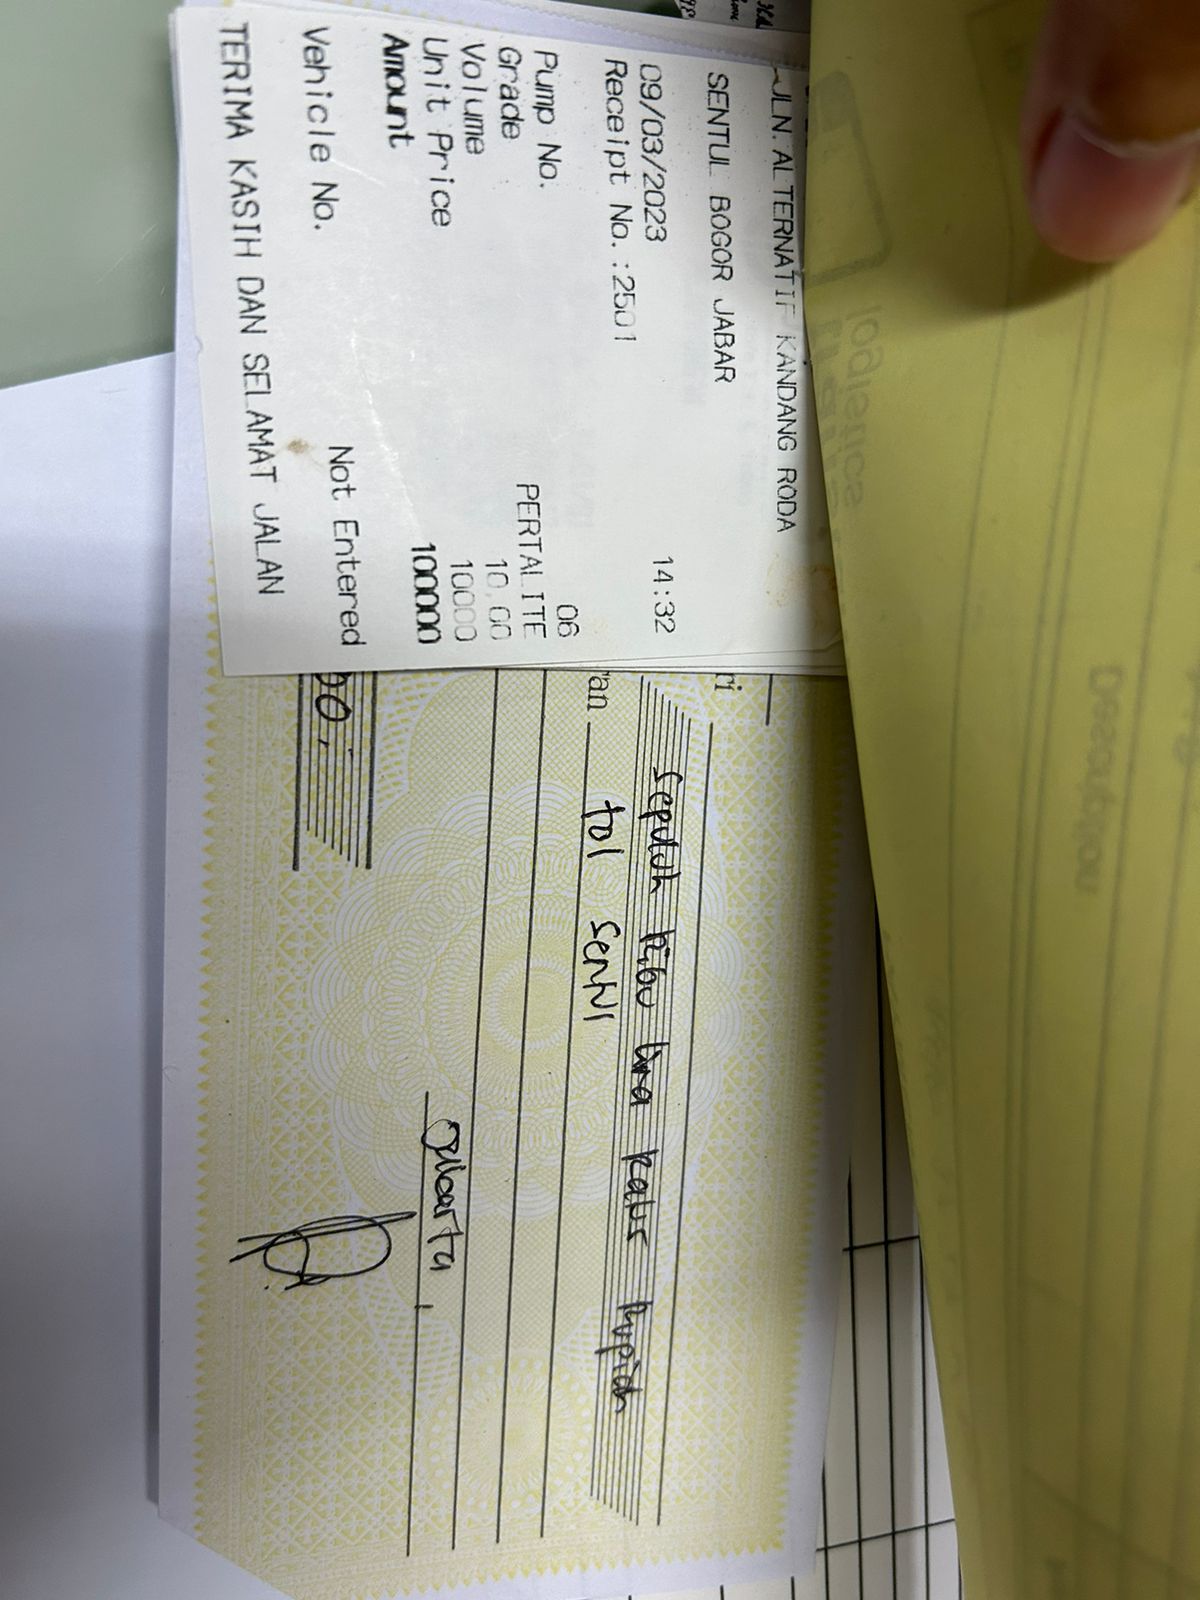 JLN. ALTERNATIF KANDANG RODA
SENTUL BOGOR JABAR
09/03/2023 14:32
Receipt No.:2501
Pump No. 06
Grade PERTALITE
Volume 10.00
Unit Price 10000
Amount 100000
Vehicle No. Not Entered
TERIMA KASIH DAN SELAMAT JALAN
ri
Sepuluh Ribu lima Ratus Rupiah
ran tol Sentul
Jakarta,
00,-
Description